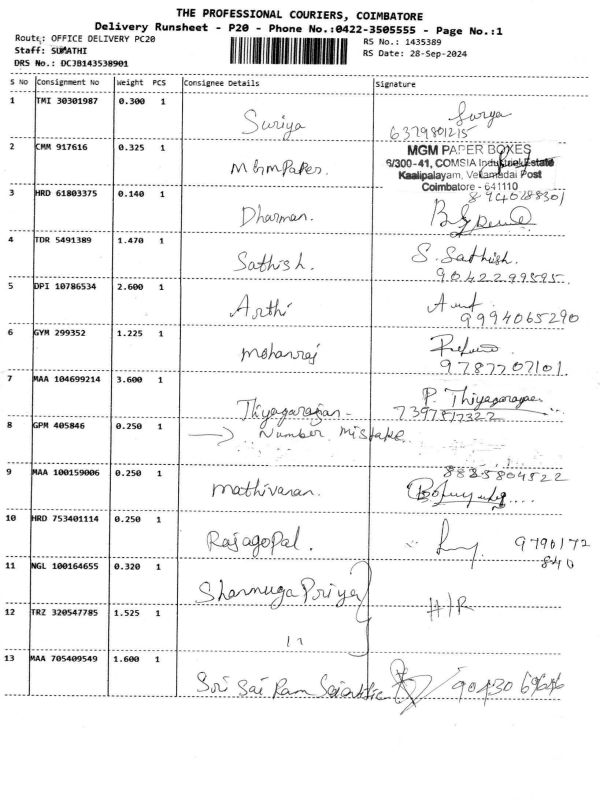 THE PROFESSIONAL COURIERS, COIMBATORE
Delivery Runsheet - P20 - Phone No.:0422-3505555 - Page No.:1
Route: OFFICE DELIVERY PC20
RS No.: 1435389
Staff: SUMATHI
RS Date: 28-Sep-2024
DRS No.: DCJB143538901
S No Consignment No Weight PCS Consignee Details Signature
1 TMI 30301987 0.300 1 Suriya Surya
6379801215
2 CMM 917616 0.325 1 MGM PAPER BOXES
6/300-41, COMSIA Industrial Estate
Kaalipalayam, Vellamadai Post
Coimbatore - 641110
3 HRD 61803375 0.140 1 Dharman.
4 TDR 5491389 1.470 1 Sathish. S. Sathish.
5 DPI 10786534 2.600 1 Arthi
9994065290
6 GYM 299352 1.225 1 mohanraj
9787707101.
7 MAA 104699214 3.600 1 Thiyagarajan - P. Thiyagarajan
8 GPM 405846 0.250 1 → Number Mistake
9 MAA 100159006 0.250 1 mathivanan. 8825804522
10 HRD 753401114 0.250 1 Rajagopal. 9790172
840
11 NGL 100164655 0.320 1 Shanmuga Priya
H/R
12 TRZ 320547785 1.525 1 11
13 MAA 705409549 1.600 1 Sri Sai Ram Scientific